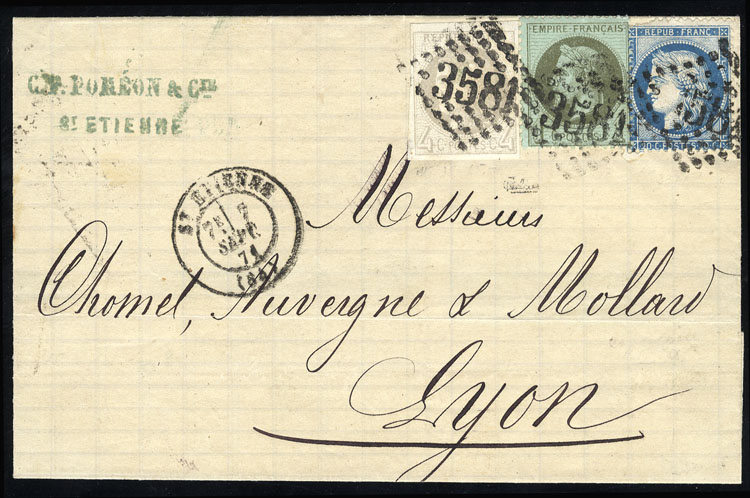 CH. POREON & CIE
ST ETIENNE
REPUB
4 CENTIMES 4
3581
EMPIRE FRANÇAIS
3581
REPUB. FRANC.
20 CENTIMES 20
ST ETIENNE
7E 7
SEPT.
71
Messieurs
Chomel, Auvergne & Mollard
Lyon